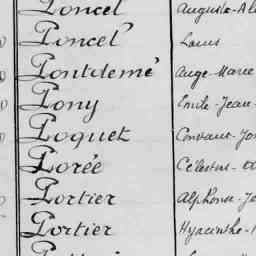 Poncel Auguste-Al
Poncel Louis
Pontdemé Ange-Marie
Pony Emile-Jean-
Poquet Constant-Jo
Porée Célestin-
Portier Alphonse-Je
Portier Hyacinthe-